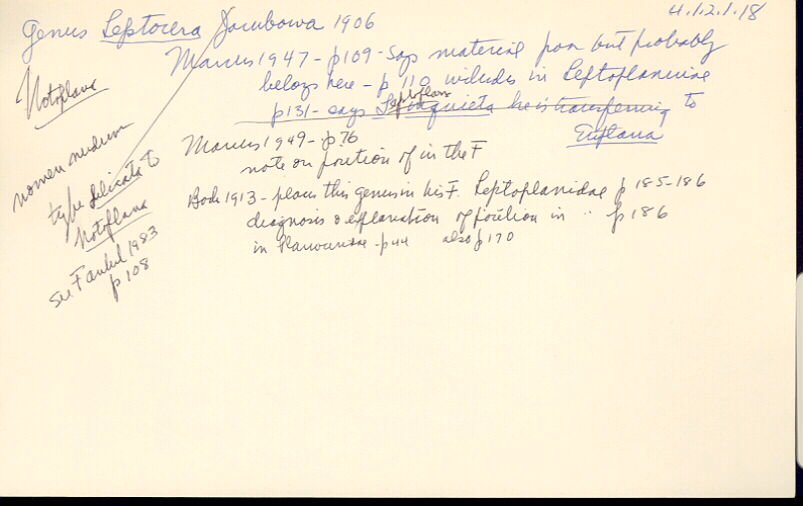 4.1.2.1.18
Genus Leptocera Jacubowa 1906
Marcus 1947 - p109 - says material poor but probably
belongs here - p 110 includes in Leptoplaninae
p131 - says Leptoplana inquieta he is transferring to
Euplana
Marcus 1949 - p.76
note on position of in the F
Bock 1913 - places this genus in his F. Leptoplanidae p 185-186
diagnosis & explanation of position in " p 186
in Planoceridae - p44 also p170
Notoplana
nomen nudum
type delicata to
Notoplana
see Faubel 1983
p108